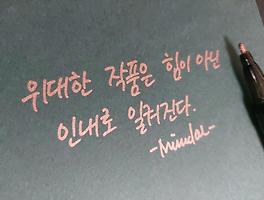 위대한 작품은 힘이 아닌
인내로 일궈진다.